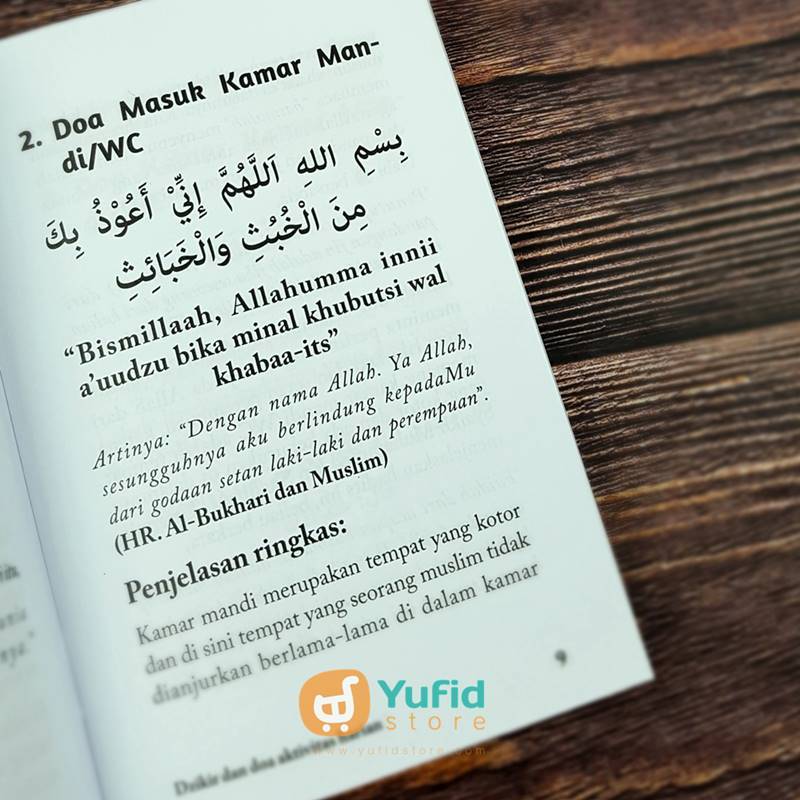 2. Doa Masuk Kamar Man-
di/WC
بِسْمِ اللهِ اَللَّهُمَّ إِنِّيْ أَعُوْذُ بِكَ
مِنَ الْخُبُثِ وَالْخَبَائِثِ
“Bismillaah, Allahumma innii
a’uudzu bika minal khubutsi wal
khabaa-its”
Artinya: “Dengan nama Allah. Ya Allah,
sesungguhnya aku berlindung kepadaMu
dari godaan setan laki-laki dan perempuan”.
(HR. Al-Bukhari dan Muslim)
Penjelasan ringkas:
Kamar mandi merupakan tempat yang kotor
dan di sini tempat yang seorang muslim tidak
dianjurkan berlama-lama di dalam kamar
9
Dzikir dan doa aktivitas harian
Yufid
store
www.yufidstore.com